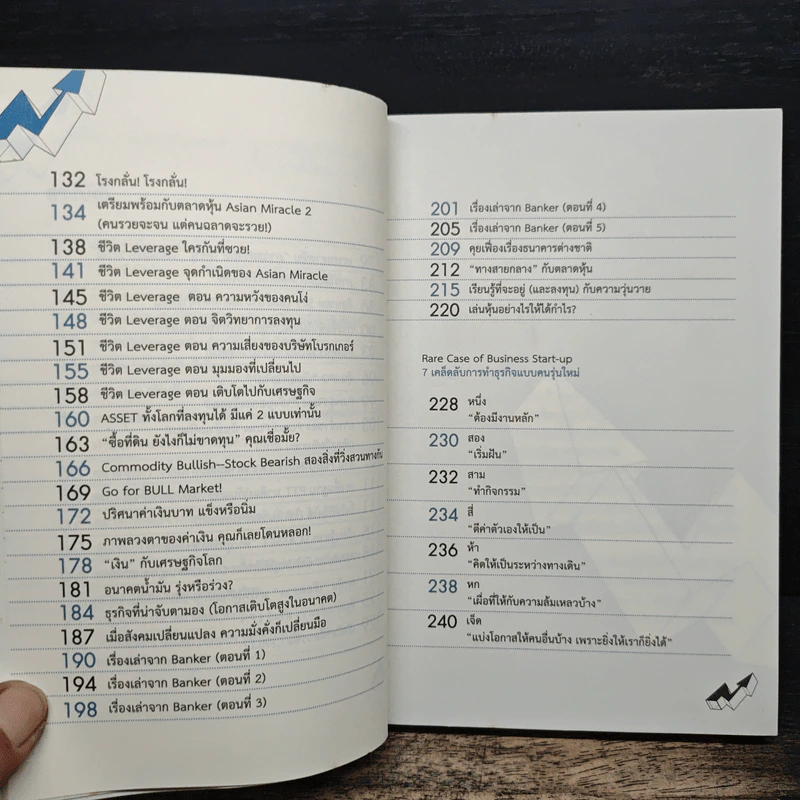 132 โรงกลั่น! โรงกลั่น!
134 เตรียมพร้อมกับตลาดหุ้น Asian Miracle 2
(คนรวยจะจน แต่คนฉลาดจะรวย!)
138 ชีวิต Leverage ใครกันที่ซวย!
141 ชีวิต Leverage จุดกำเนิดของ Asian Miracle
145 ชีวิต Leverage ตอน ความหวังของคนโง่
148 ชีวิต Leverage ตอน จิตวิทยาการลงทุน
151 ชีวิต Leverage ตอน ความเสี่ยงของบริษัทโบรกเกอร์
155 ชีวิต Leverage ตอน มุมมองที่เปลี่ยนไป
158 ชีวิต Leverage ตอน เติบโตไปกับเศรษฐกิจ
160 ASSET ทั้งโลกที่ลงทุนได้ มีแค่ 2 แบบเท่านั้น
163 “ซื้อที่ดิน ยังไงก็ไม่ขาดทุน” คุณเชื่อมั้ย?
166 Commodity Bullish–Stock Bearish สองสิ่งที่วิ่งสวนทางกัน
169 Go for BULL Market!
172 ปริศนาค่าเงินบาท แข็งหรือนิ่ม
175 ภาพลวงตาของค่าเงิน คุณก็เลยโดนหลอก!
178 “เงิน” กับเศรษฐกิจโลก
181 อนาคตน้ำมัน รุ่งหรือร่วง?
184 ธุรกิจที่น่าจับตามอง (โอกาสเติบโตสูงในอนาคต)
187 เมื่อสังคมเปลี่ยนแปลง ความมั่งคั่งก็เปลี่ยนมือ
190 เรื่องเล่าจาก Banker (ตอนที่ 1)
194 เรื่องเล่าจาก Banker (ตอนที่ 2)
198 เรื่องเล่าจาก Banker (ตอนที่ 3)
201 เรื่องเล่าจาก Banker (ตอนที่ 4)
205 เรื่องเล่าจาก Banker (ตอนที่ 5)
209 คุยเฟื่องเรื่องธนาคารต่างชาติ
212 “ทางสายกลาง” กับตลาดหุ้น
215 เรียนรู้ที่จะอยู่ (และลงทุน) กับความวุ่นวาย
220 เล่นหุ้นอย่างไรให้ได้กำไร?
Rare Case of Business Start-up
7 เคล็ดลับการทำธุรกิจแบบคนรุ่นใหม่
228 หนึ่ง
“ต้องมีงานหลัก”
230 สอง
“เริ่มฝัน”
232 สาม
“ทำกิจกรรม”
234 สี่
“ตีค่าตัวเองให้เป็น”
236 ห้า
“คิดให้เป็นระหว่างทางเดิน”
238 หก
“เผื่อที่ให้กับความล้มเหลวบ้าง”
240 เจ็ด
“แบ่งโอกาสให้คนอื่นบ้าง เพราะยิ่งให้เราก็ยิ่งได้”